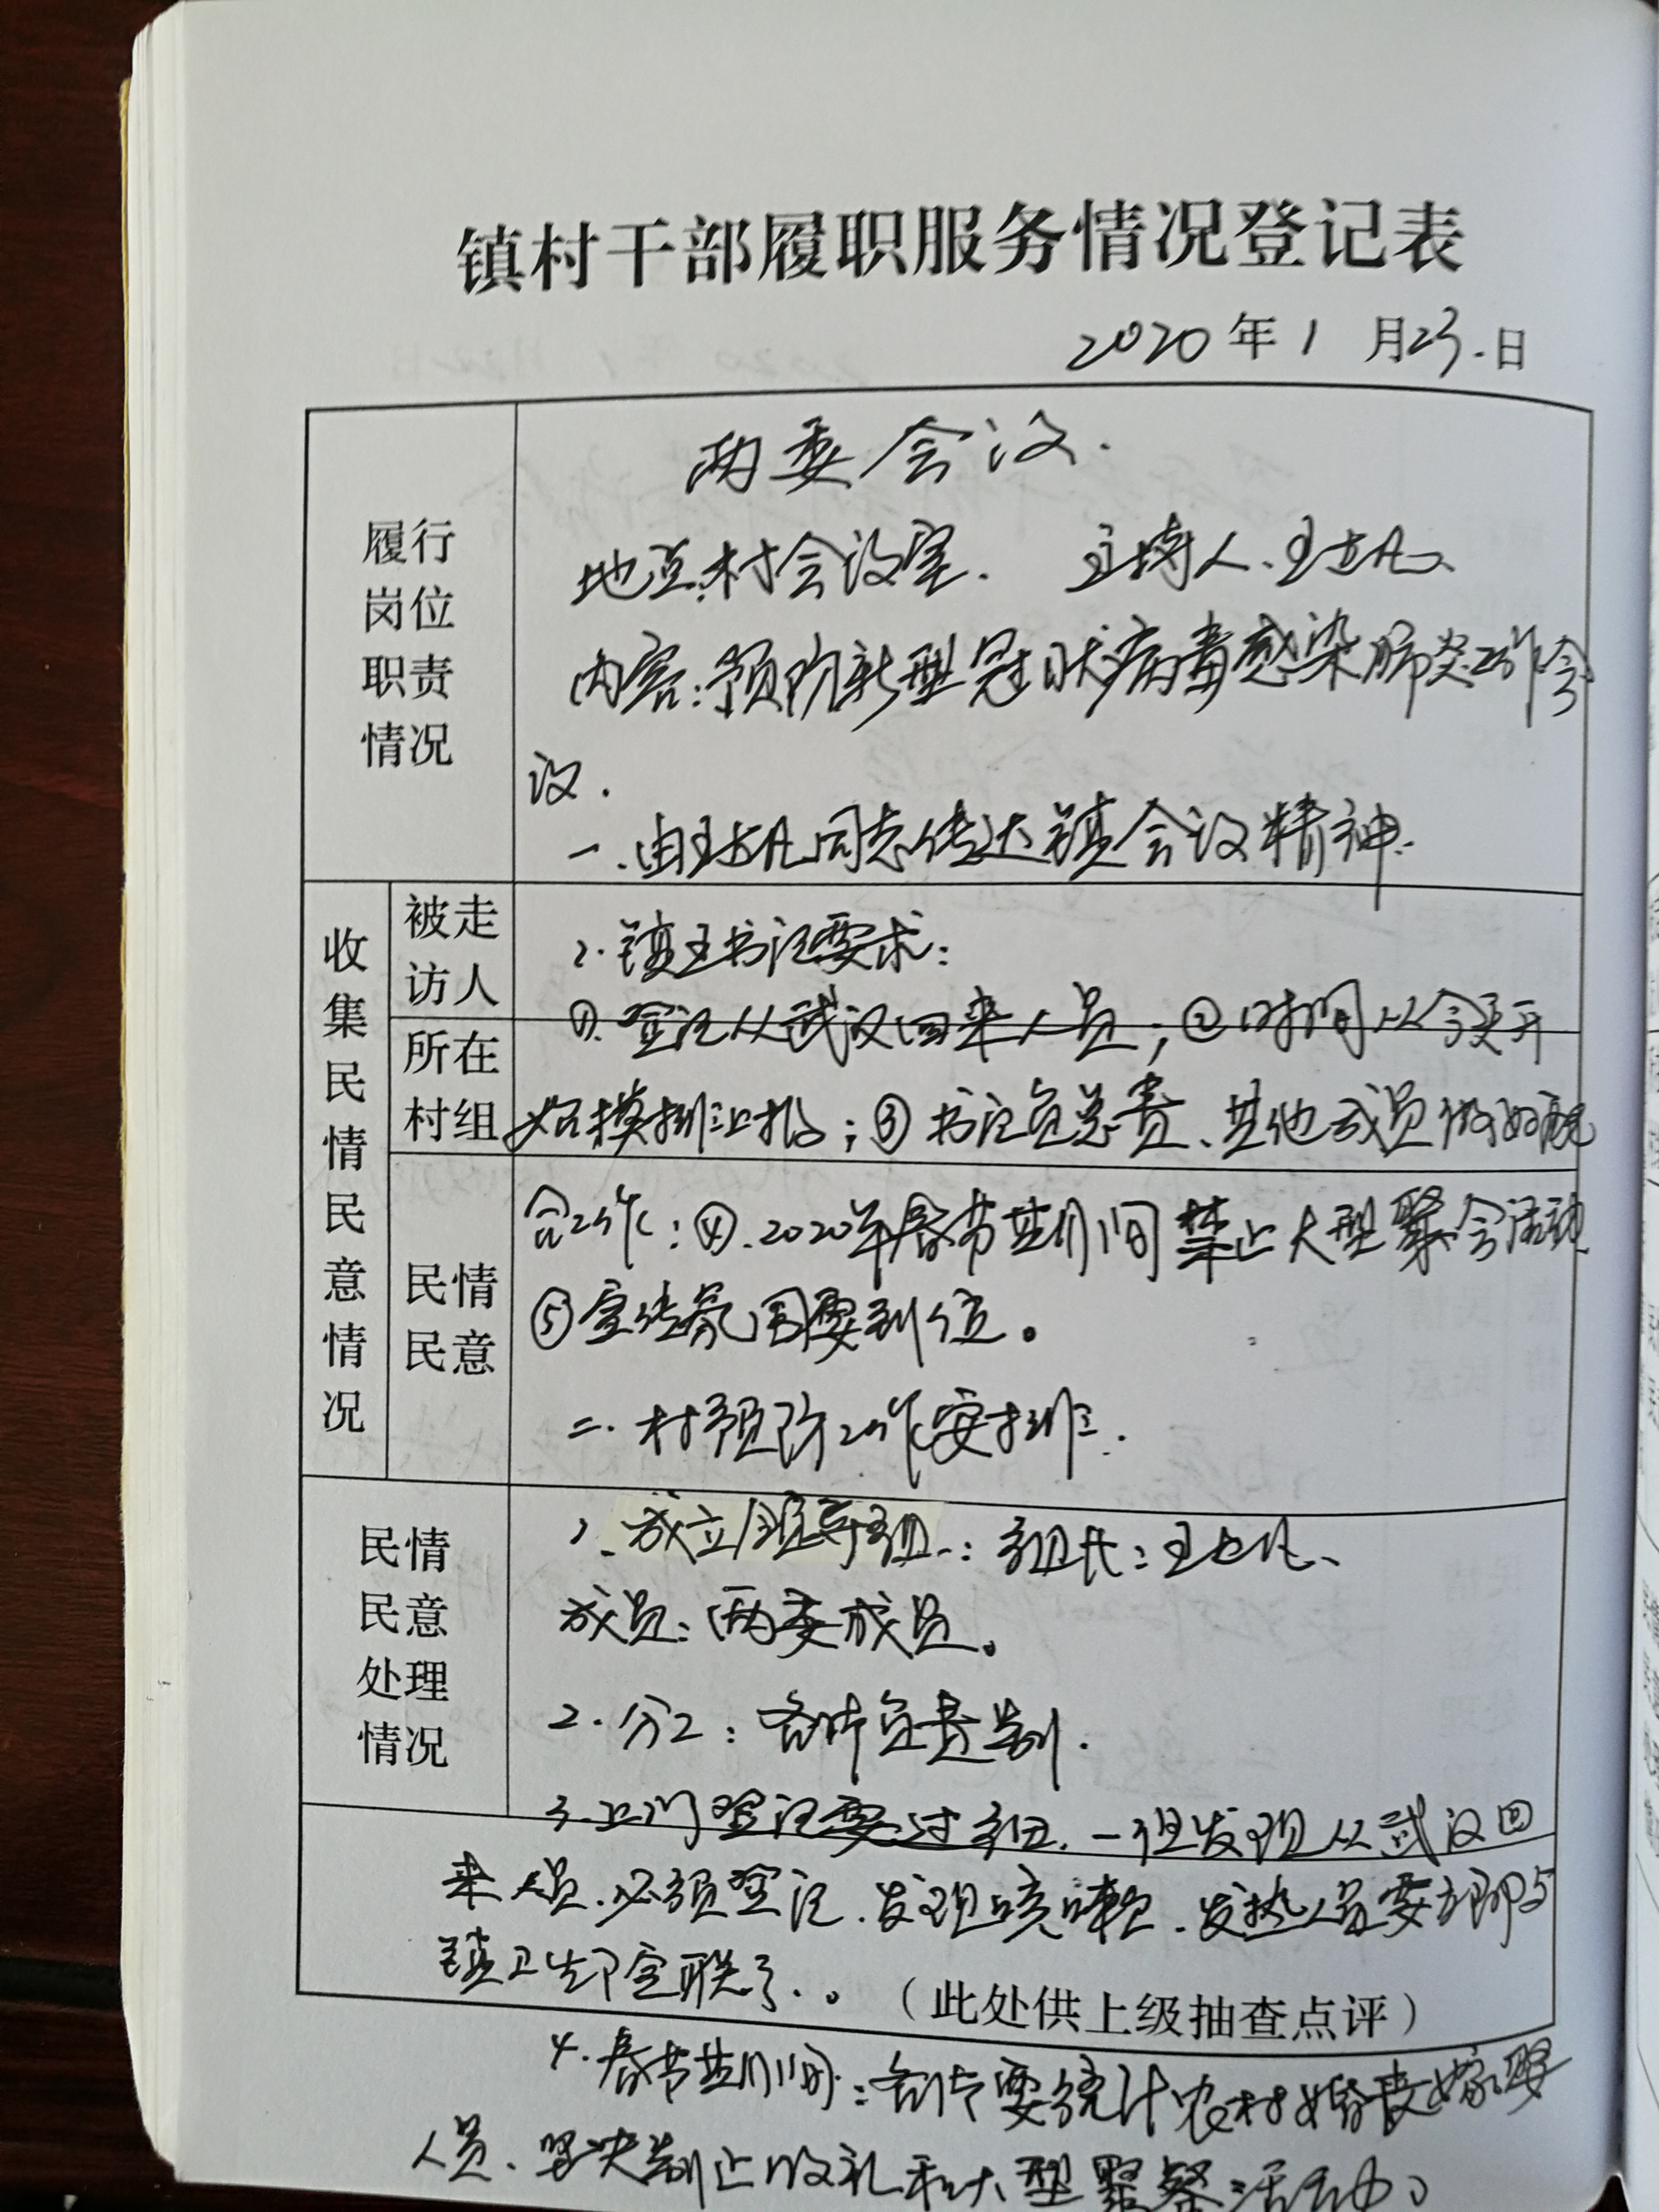 镇村干部履职服务情况登记表
2020年1月23日
两委会议.
履行
岗位
职责
情况
地点:村会议室. 主持人、王士凡
内容:预防新型冠状病毒感染肺炎工作会
议.
一.由王士凡同志传达镇会议精神.
收集民情民意情况
被走
访人
镇王书记要求:
①.登记从武汉回来人员;②时间从今天开
所在
村组
始摸排上报;③书记负总责、其他成员做好配
合工作;④.2020年春节期间禁止大型聚会活动
民情
民意
⑤宣传氛围要到位。
二.村预防工作安排.
民情
民意
处理
情况
1.成立领导组:组长:王士凡、
成员:两委成员。
2.分工:各片负责制.
3.上门登记要过细.一但发现从武汉回
来人员.必须登记.发现咳嗽.发热人员要立即与
镇卫生院联系.。
(此处供上级抽查点评)
4.春节期间:各片要统计农村婚丧嫁娶
人员、坚决制止收礼和大型聚餐活动。